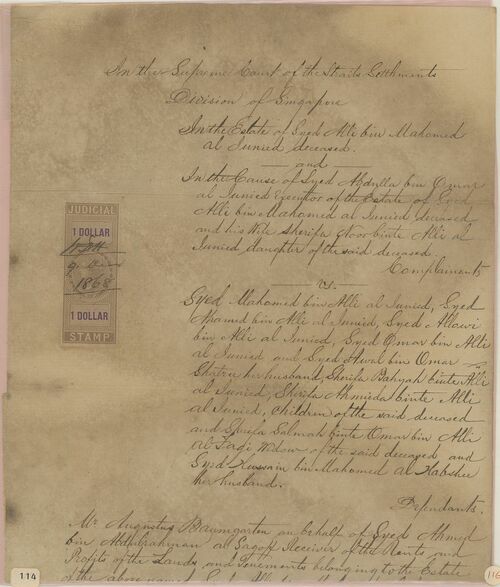 In the Supreme Court of the Straits Settlements
Division of Singapore
In the Estate of Syed Alli bin Mahomed
al Junied deceased.
and
In the Cause of Syed Abdulla bin Omar
al Junied Executor of the Estate of Syed
Alli bin Mahomed al Junied deceased
and his Wife Sherifa binte Alli al
Junied daughter of the said deceased.
Complainants
vs.
Syed Mahomed bin Alli al Junied, Syed
Ahamed bin Alli al Junied, Syed Allawi
bin Alli al Junied, Syed Omar bin Alli
al Junied and Syed bin Omar
her husband, Sherifa Bahyah binte Alli
al Junied, Sherifa Ahmieda binte Alli
al Junied, Children of the said deceased
and Sherifa Salmah binte Omar bin Alli
Widow of the said deceased and
Syed Hussain bin Mahomed Al Habshee
her husband.
Defendants.
Mr Augustus Baumgarten on behalf of Syed Ahmed
bin Abdulrahman al Sagoff Receiver of the Rents and
Profits of the Lands and Tenements belonging to the Estate
of the above named Syed Alli
JUDICIAL
1 DOLLAR
1868
1 DOLLAR
STAMP
114